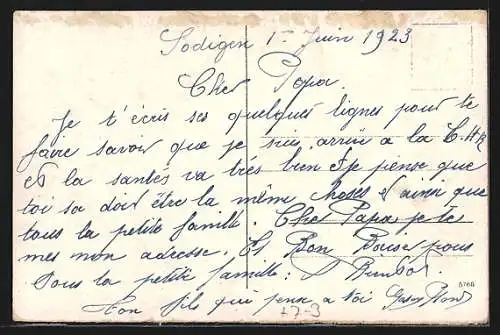 Sodigen 1er Juin 1923
Cher Papa.
Je t'écris ses quelques lignes pour te
faire savoir que je suis arrivé a la
et la santés va très bien Je pense que
toi sa doit être la même choses et ainsi que
tous la petite famille. Cher Papa je tes
mes mon adresse. Et Bon Baiser pour
tous la petite famille.
Ton fils qui pense a toi
5766
+7-3